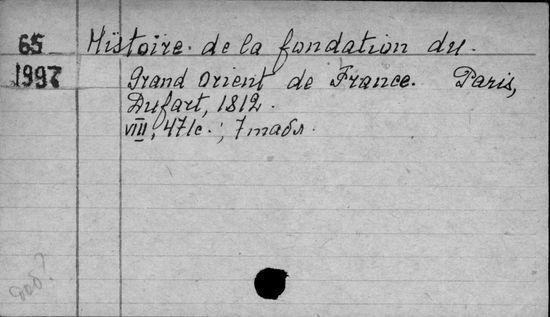 65
1997
Histoire de la fondation du
Grand Orient de France. Paris,
Dufart, 1812.
VIII, 471c.; 7 табл.
доб?